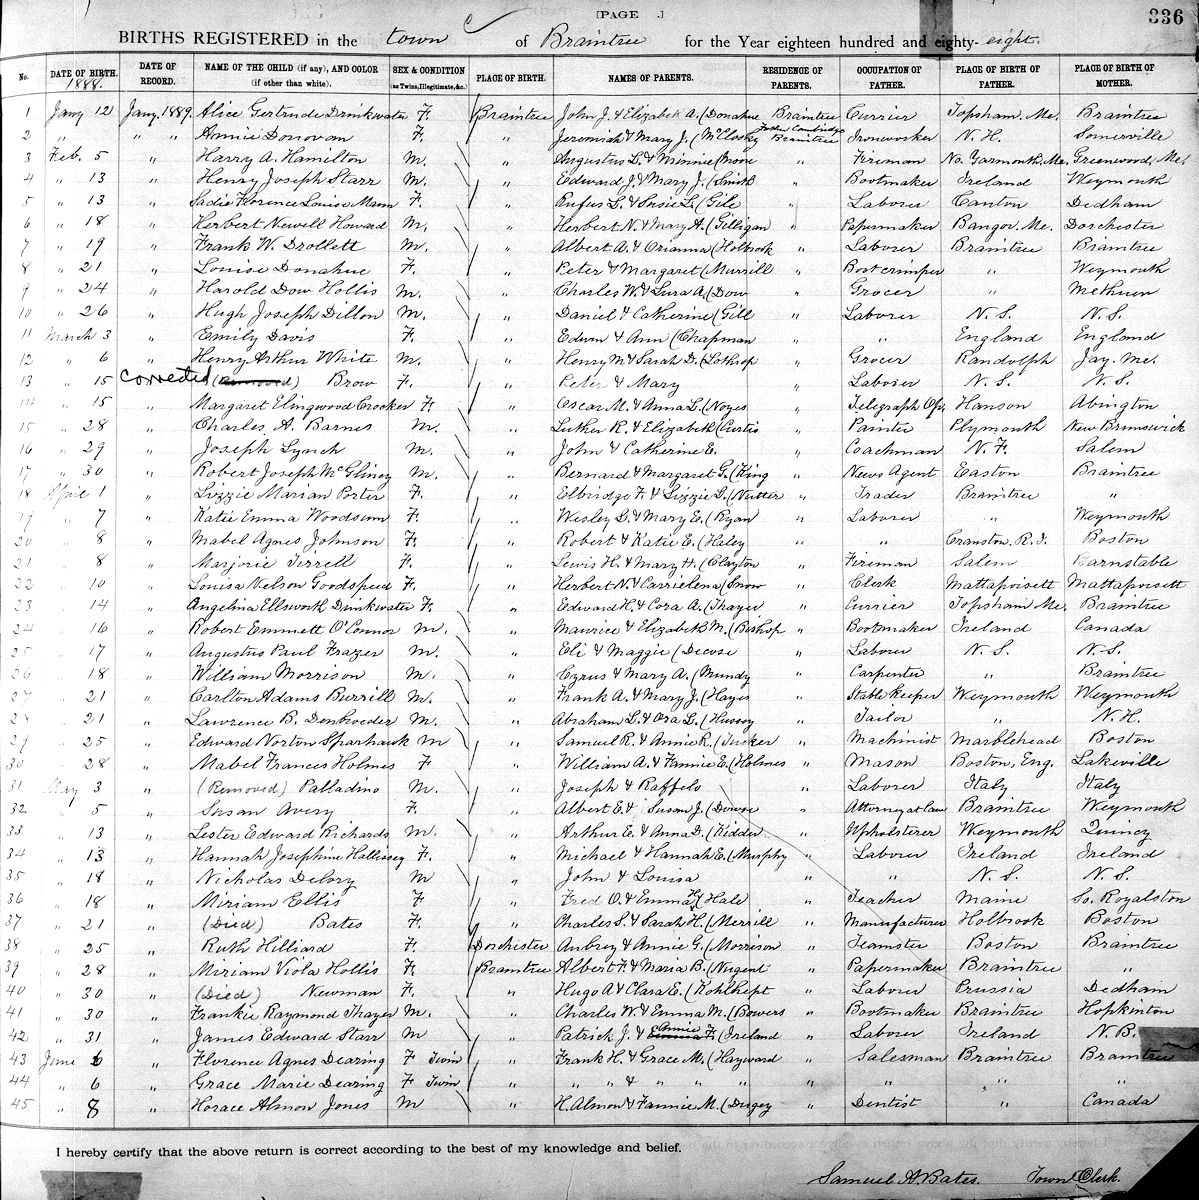 [PAGE .] 336
BIRTHS REGISTERED in the town of Braintree for the Year eighteen hundred and eighty-eight.
No. DATE OF BIRTH. 1888. DATE OF RECORD. NAME OF THE CHILD (if any), AND COLOR (if other than white). SEX & CONDITION (as Twins, Illegitimate, &c.) PLACE OF BIRTH. NAMES OF PARENTS. RESIDENCE OF PARENTS. OCCUPATION OF FATHER. PLACE OF BIRTH OF FATHER. PLACE OF BIRTH OF MOTHER.
1 Jany 12 Jany. 1889. Alice Gertrude Drinkwater F. Braintree John J. & Elizabeth A. (Donahue Braintree Currier Topsham, Me. Braintree
2 " " " " Annie Donovan F. " Jeremiah & Mary J. (McClosky Braintree Ironworker N. H. Somerville
3 Feb. 5 " Harry A. Hamilton M. " Augustus L. & Minnie (Mone " Fireman No. Yarmouth, Me. Greenwood, Me.
4 " 13 " Henry Joseph Starr M. " Edward J. & Mary J. (Smith " Bootmaker Ireland Weymouth
5 " 13 " Sadie Florence Louise Mann F. " Rufus L. & Susie L. (Gile " Laborer Canton Dedham
6 " 18 " Herbert Newell Howard M. " Herbert N. & Mary A. (Gilligan " Papermaker Bangor, Me. Dorchester
7 " 19 " Frank W. Drollett M. " Albert A. & Orianna (Holbrook " Laborer Braintree Braintree
8 " 21 " Louise Donahue F. " Peter & Margaret (Murrill " Bootcrimper " Weymouth
9 " 24 " Harold Dow Hollis M. " Charles W. & Lura A. (Dow " Grocer " Methuen
10 " 26 " Hugh Joseph Dillon M. " Daniel & Catherine (Gill " Laborer N. S. N. S.
11 March 3 " Emily Davis F. " Edwn & Ann (Chapman " " England England
12 " 6 " Henry Arthur White M. " Henry M. & Sarah D. (Lothrop " Grocer Randolph Jay. Me.
13 " 15 Corrected (Removed) Brow F. " Peter & Mary " Laborer N. S. N. S.
14 " 15 " Margaret Elingwood Crocker F. " Oscar M. & Anna L. (Noyes " Telegraph Opr. Hanson Abington
15 " 28 " Charles A. Barnes M. " Luther R. & Elizabeth (Curtis " Painter Plymouth New Brunswick
16 " 29 " Joseph Lynch M. " John & Catherine E. " Coachman N. F. Salem
17 " 30 " Robert Joseph McGlincy M. " Bernard & Margaret G. (King " News Agent Easton Braintree
18 April 1 " Lizzie Marian Porter F. " Elbridge F. & Lizzie L. (Nutter " Trader Braintree "
19 " 7 " Katie Emma Woodsum F. " Wesley L. & Mary E. (Ryan " Laborer " Weymouth
20 " 8 " Mabel Agnes Johnson F. " Robert & Katie E. (Haley " " Cranston. R. I. Boston
21 " 8 " Marjorie Tirrell F. " Lewis H. & Mary H. (Clayton " Fireman Salem Barnstable
22 " 10 " Louisa Nelson Goodspeed F. " Herbert N. & Carrielena (Snow " Clerk Mattapoisett Mattapoisett
23 " 14 " Angelina Ellsworth Drinkwater F. " Edward H. & Cora A. (Thayer " Currier Topsham Me. Braintree
24 " 16 " Robert Emmett O'Connor M. " Maurice & Elizabeth M. (Bishop " Bootmaker Ireland Canada
25 " 17 " Augustus Paul Frazer M. " Eli & Maggie (Decose " Laborer N. S. N. S.
26 " 18 " William Morrison M. " Cyrus & Mary A. (Mundy " Carpenter " Braintree
27 " 21 " Carlton Adams Burrill M. " Frank A. & Mary J. (Hayes " Stable Keeper Weymouth Weymouth
28 " 21 " Lawrence B. Denbroeder M. " Abraham L. & Ora L. (Hussey " Tailor " N. H.
29 " 25 " Edward Norton Sparhawk M " Samuel R. & Annie R. (Tucker " Machinist Marblehead Boston
30 " 28 " Mabel Frances Holmes F " William A. & Fannie E. (Holmes " Mason Boston, Eng. Lakeville
31 May 3 " (Removed) Palladino M. " Joseph & Raffelo " Laborer Italy Italy
32 " 5 " Susan Avery F. " Albert E. & Susan J. (Dowse " Attorney at law Braintree Weymouth
33 " 13 " Lester Edward Richards M. " Arthur E. & Anna D. (Kidder " Upholsterer Weymouth Quincy
34 " 13 " Hannah Josephine Hallissey F. " Michael & Hannah E. (Murphy " Laborer Ireland Ireland
35 " 18 " Nicholas Delory M " John & Louisa " " N. S. N. S.
36 " 18 " Miriam Ellis F " Fred O. & Emma H. (Hale " Teacher Maine So. Royalston
37 " 21 " (Died) Bates F. " Charles S. & Sarah H. (Merrill " Manufacturer Holbrook Boston
38 " 25 " Ruth Hilliard F. Dorchester Aubrey & Annie G. (Morrison " Teamster Boston Braintree
39 " 28 " Miriam Viola Hollis F. Braintree Albert F. & Maria B. (Nugent " Papermaker Braintree "
40 " 30 " (Died) Newman F. " Hugo A. & Clara E. (Kohlhept " Laborer Prussia Dedham
41 " 30 " Frankie Raymond Thayer M. " Charles W. & Emma M. (Bowers " Bootmaker Braintree Hopkinton
42 " 31 " James Edward Starr M " Patrick J. & Annie F. (Ireland " Laborer Ireland N. B.
43 June 6 " Florence Agnes Dearing F Twin " Frank H. & Grace M. (Hayward " Salesman Braintree Braintree
44 " 6 " Grace Marie Dearing F Twin " " " & " " " " " " "
45 " 8 " Horace Almon Jones M " H. Almon & Fannie M. (Dugey " Dentist " Canada
I hereby certify that the above return is correct according to the best of my knowledge and belief.
Samuel A. Bates. Town Clerk.